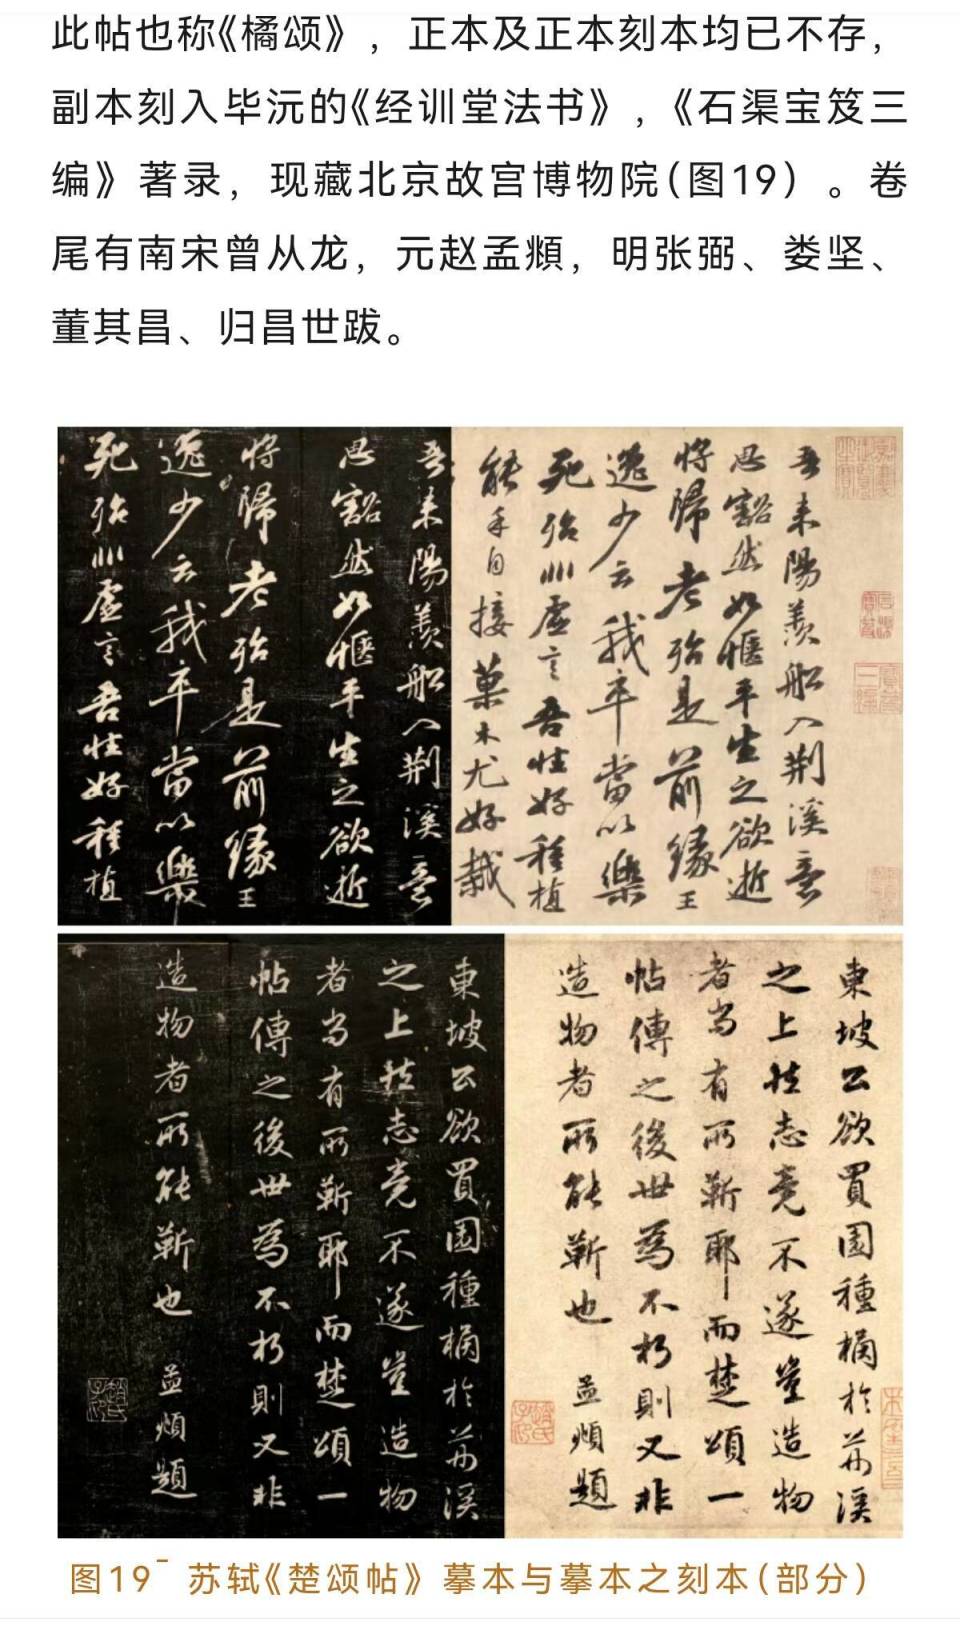 此帖也称《橘颂》，正本及正本刻本均已不存，
副本刻入毕沅的《经训堂法书》，《石渠宝笈三
编》著录，现藏北京故宫博物院（图19）。卷
尾有南宋曾从龙，元赵孟頫，明张弼、娄坚、
董其昌、归昌世跋。
吾来陽羨船入荆溪意
思豁然如惬平生之欲逝
将歸老殆是前缘王
逸少云我卒當以樂
死殆非虚言吾性好種植
能手自接菓木尤好栽
吾来陽羨船入荆溪意
思豁然如惬平生之欲逝
将歸老殆是前缘王
逸少云我卒當以樂
死殆非虚言吾性好種植
東坡公欲買園種橘於荊溪
之上然志竟不遂豈造物
者尚有所靳耶而楚頌一
帖傳之後世為不朽則又非
造物者所能靳也 孟頫題
東坡公欲買園種橘於荊溪
之上然志竟不遂豈造物
者尚有所靳耶而楚頌一
帖傳之後世為不朽則又非
造物者所能靳也 孟頫題
图19 苏轼《楚颂帖》摹本与摹本之刻本（部分）